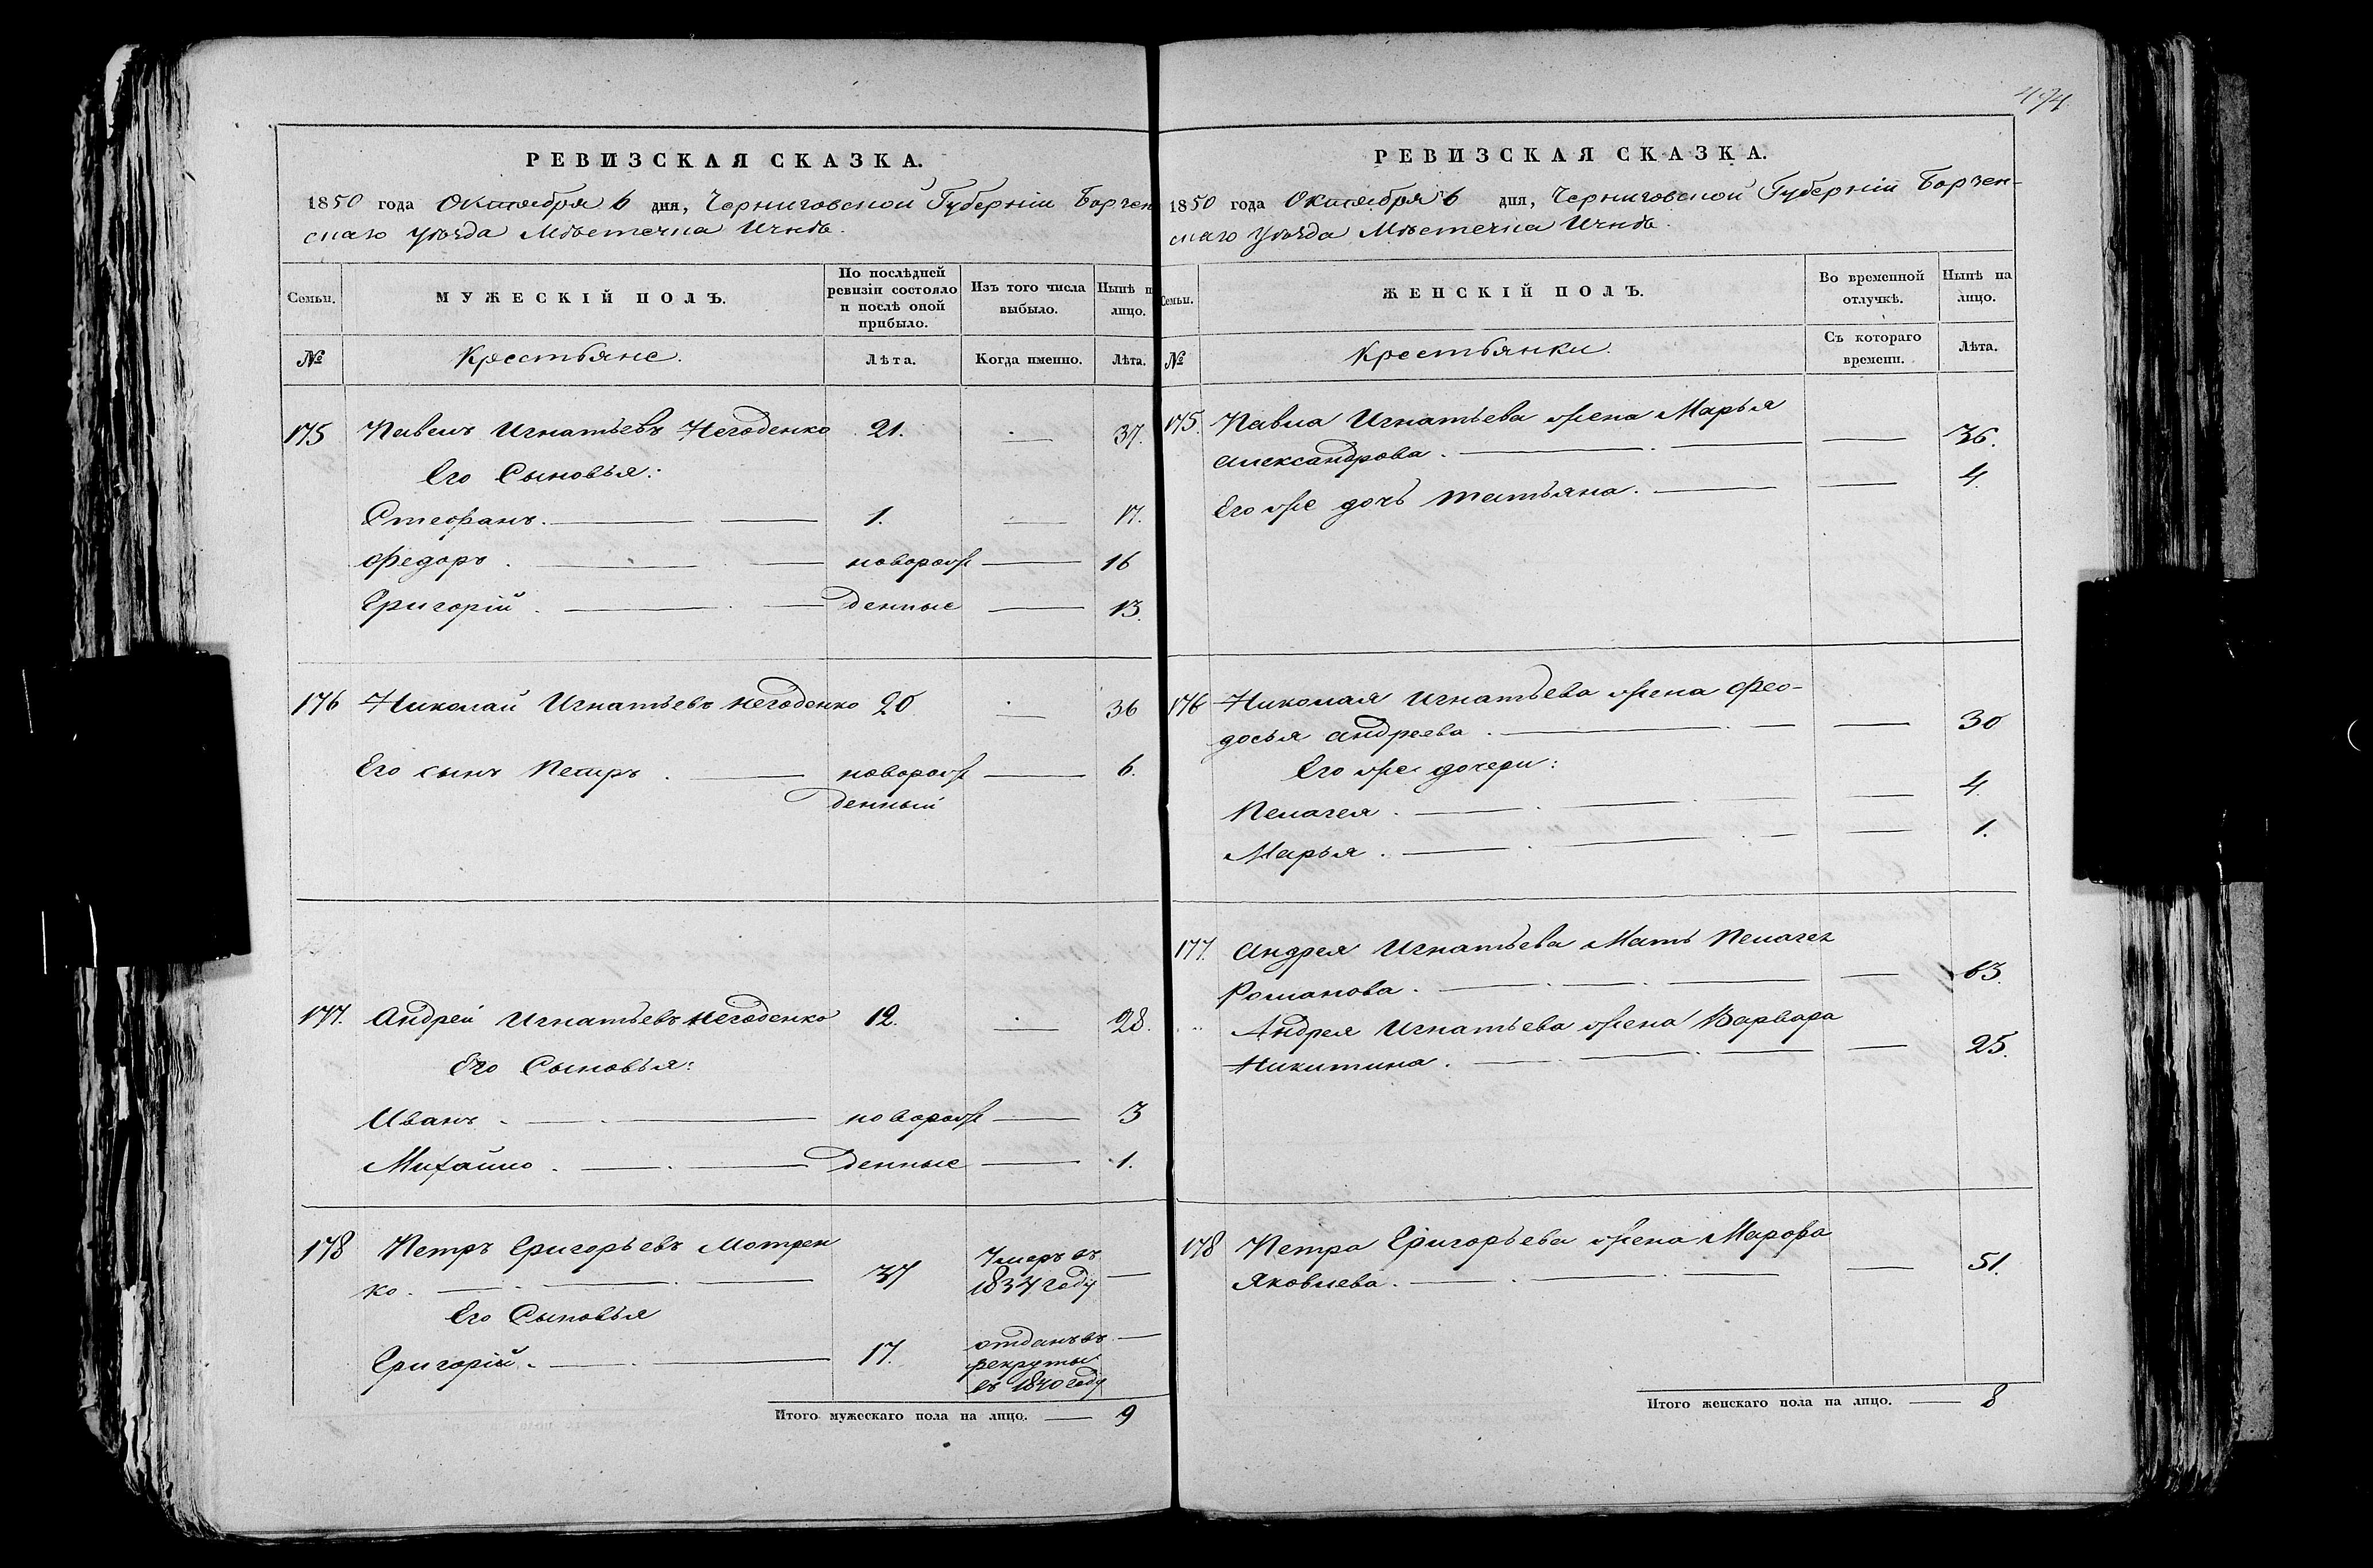 РЕВИЗСКАЯ СКАЗКА.
1850 года Октября 6 дня, Черниговской Губерніи Борзен
скаго уѣзда Мѣстечка Ични.
Семьи. МУЖЕСКІЙ ПОЛЪ. По послѣдней ревизіи состояло и послѣ оной прибыло. Изъ того числа выбыло. Нынѣ н лицо.
№ Крестьяне. Лѣта. Когда именно. Лѣта.
175 Павелъ Игнатьевъ Негоденко 21. — 37.
Его Сыновья:
Стефанъ. — 1. — 17.
Федоръ. — новорож — 16
Григорій. — денные — 13.
176 Николай Игнатьевъ Негоденко 20 — 36
Его сынъ Петръ. — новорож — 6.
денный
177. Андрей Игнатьевъ Негоденко 12. — 28.
Его Сыновья:
Иванъ. — новорож — 3
Михайло. — денные — 1.
178 Петръ Григорьевъ Мотрен
ко. — 37 Умеръ въ 1837 году —
Его Сыновья
Григорій. — 17. отданъ въ — рекруты въ 1840 году
Итого мужескаго пола на лицо. — 9
474
РЕВИЗСКАЯ СКАЗКА.
1850 года Октября 6 дня, Черниговской Губерніи Борзен-
скаго уѣзда Мѣстечка Ични.
Семьи. ЖЕНСКІЙ ПОЛЪ. Во временной отлучкѣ. Нынѣ на лицо.
№ Крестьянки. Съ котораго времени. Лѣта.
175. Павла Игнатьева жена Марья
Александрова. — — 36.
Его же дочь Татьяна. — — 4.
176 Николая Игнатьева жена Фео-
досья Андреева. — — 30
Его же дочери:
Пелагея. — — 4.
Марья. — — 1.
177. Андрея Игнатьева Мать Пелагея
Романова. — — 63.
Андрея Игнатьева жена Варвара
Никитина. — — 25.
178 Петра Григорьева жена Марфа
Яковлева. — — 51.
Итого женскаго пола на лицо. — 8